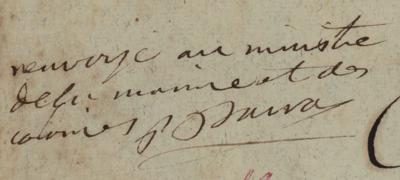 renvoyé au ministre
de la marine et des
colonies P Barras